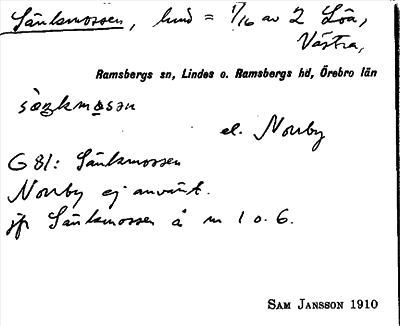 Sänkmossen, lund = 1/16 av 2 Löa,
Västra,
Ramsbergs sn, Lindes o. Ramsbergs hd, Örebro län
el. Norrby
G 81: Sänkmossen
Norrby ej använt.
jfr Sänkmossen å nr 1 o. 6.
SAM JANSSON 1910